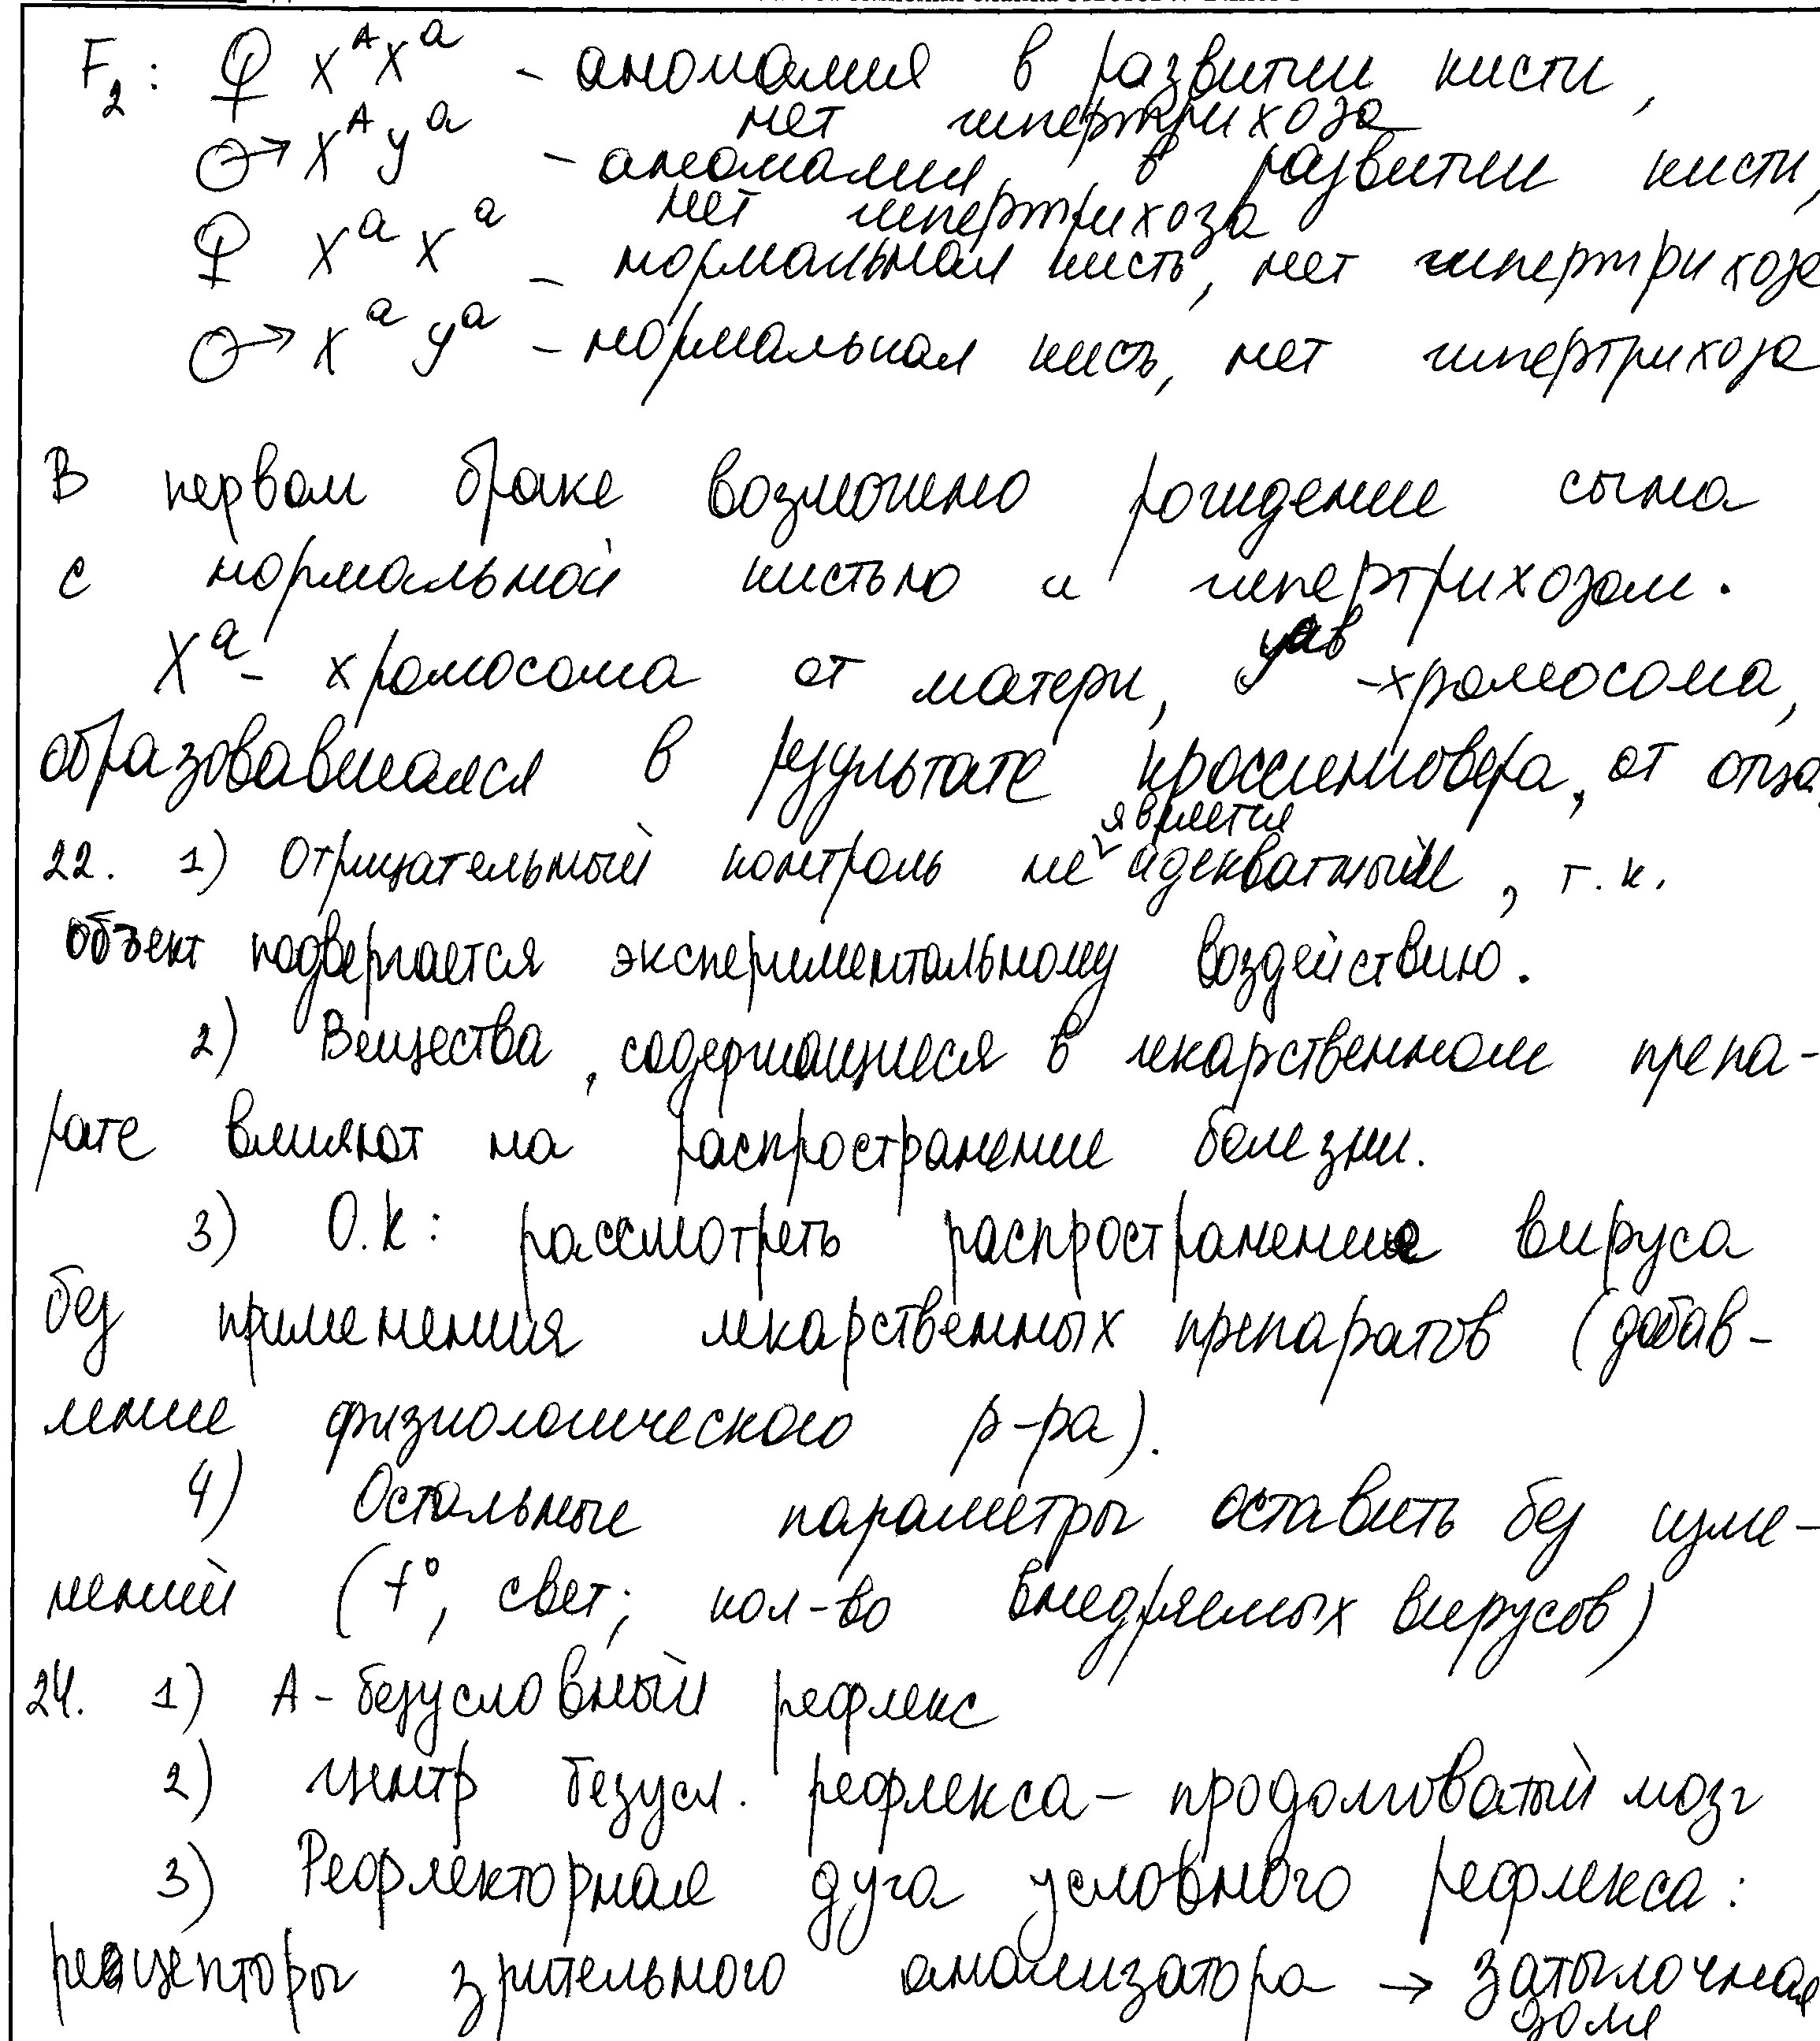 F₂: ♀ XᴬXᵃ - аномалия в развитии кисти,
нет гипертрихоза
♂ XᴬYᵃ - аномалия в развитии кисти,
нет гипертрихоза
♀ XᵃXᵃ - нормальная кисть, нет гипертрихоза
♂ XᵃYᵃ - нормальная кисть, нет гипертрихоза
В первом браке возможно рождение сына
с нормальной кистью и гипертрихозом.
Xᵃ - хромосома от матери, Yᵃᵇ - хромосома,
образовавшаяся в результате кроссинговера, от отца.
22. 1) Отрицательный контроль не является адекватным, т.к.
объект подвергается экспериментальному воздействию.
2) Вещества, содержащиеся в лекарственном препа-
рате влияют на распространение болезни.
3) О.к: рассмотреть распространение вируса
без применения лекарственных препаратов (добав-
ление физиологического р-ра).
4) Остальные параметры оставить без изме-
нений (t°, свет; кол-во внедряемых вирусов)
24. 1) А - безусловный рефлекс
2) Центр безусл. рефлекса - продолговатый мозг
3) Рефлекторная дуга условного рефлекса:
рецепторы зрительного анализатора → затылочная
доля